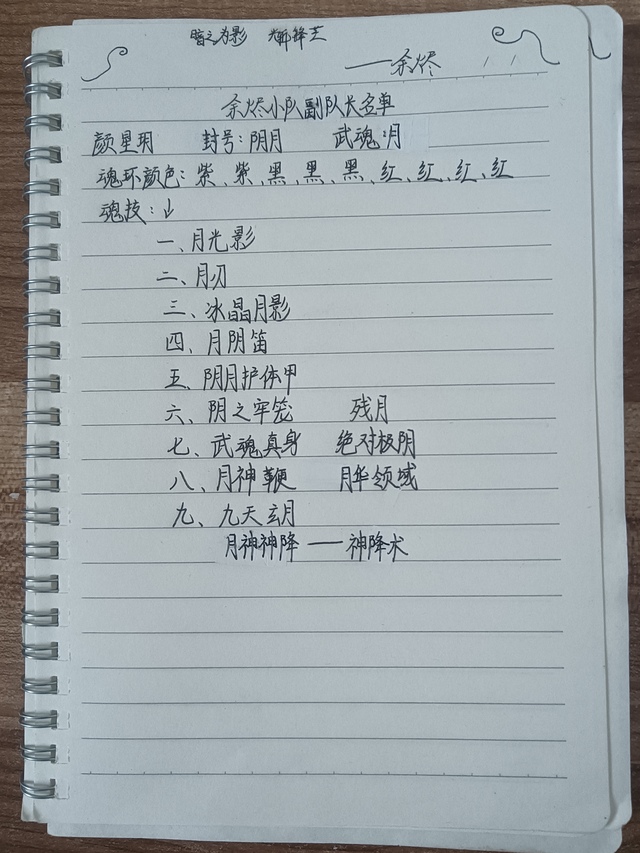 暗之为影
——余烬
余烬小队副队长名单
颜星玥 封号:阴月 武魂:月
魂环颜色:紫、紫、黑、黑、黑、红、红、红、红
魂技:↓
一、月光影
二、月刃
三、冰晶月影
四、月阴笛
五、阴月护体甲
六、阴之牢笼 残月
七、武魂真身 绝对极阴
八、月神鞭 月华领域
九、九天玄月
月神神降——神降术